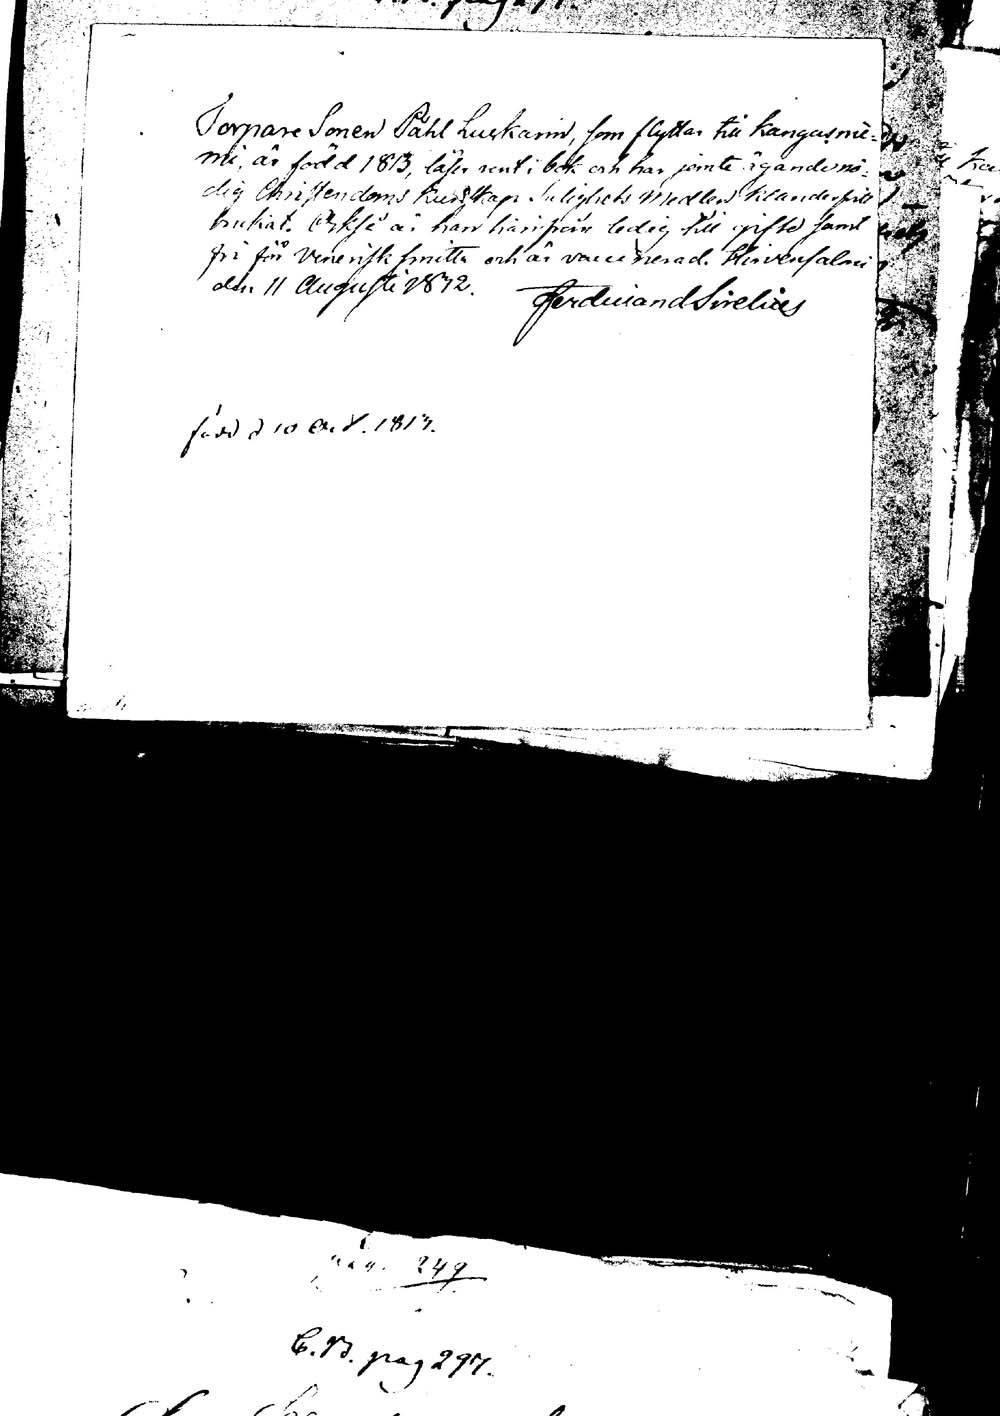 pag 297.
Torpare Sonen Påhl Luukain, som flyttar till Kangasnie=
mi, är född 1813, läser rent i bok och har jämte ägande nö=
dig Christendoms Kunskap Salighets Medlen klanderfritt
brukat. Också är han härifrån ledig till gifte samt
fri för Venerisk smitta och är vaccinerad. Hirvensalmi
den 11 Augusti 1842.
Ferdinand Sirelius
född d 10 Oct. 1813.
pag. 249
C.B. pag 297.